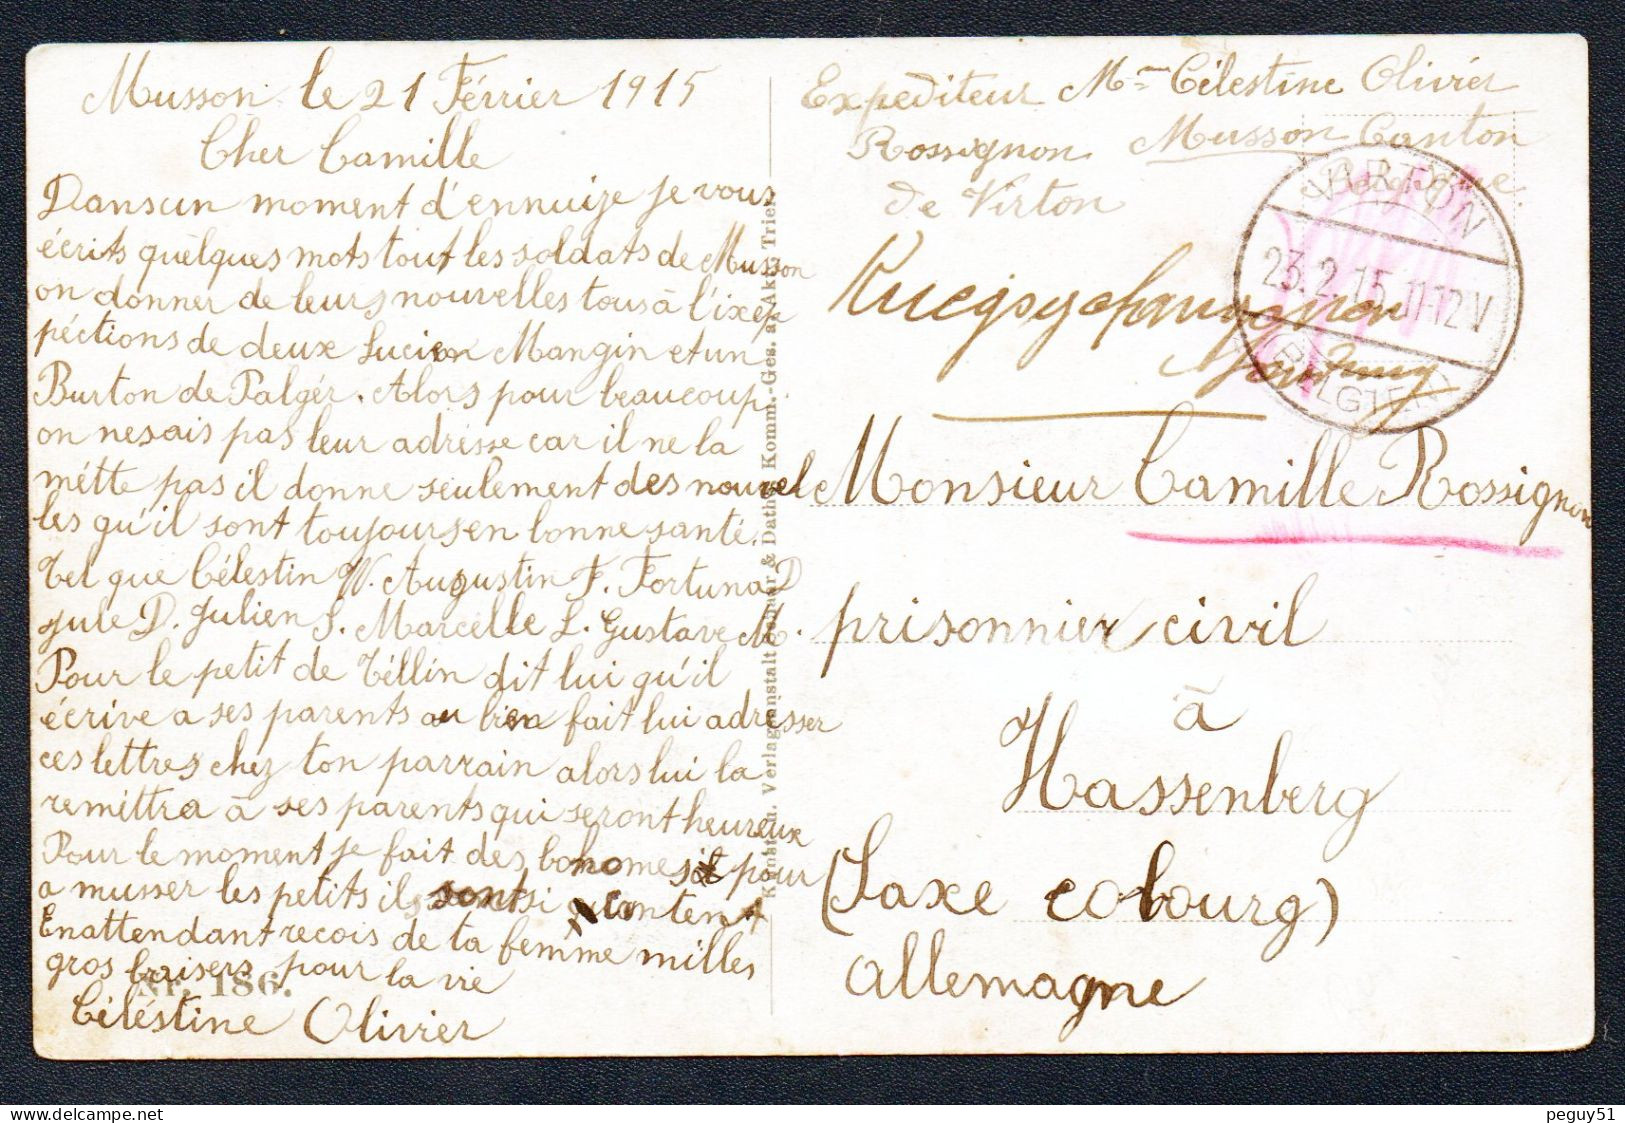 Musson le 21 Février 1915
Cher Camille
Dansun moment d'ennuize je vous
écrits quelques mots tout les soldats de Musson
on donner de leurs nouvelles tous à l'ixép
péctions de deux Lucien Mangin et un
Burton de Palgér. Alors pour beaucoup
on nesais pas leur adrésse car il ne la
métte pas il donne seulement des nouvel
les qu'il sont toujours en bonne santé.
tel que Célestin W. Augustin F. Fortuna D
jule D. Julien S. Marcelle L. Gustave M.
Pour le petit de Téllin dit lui qu'il
écrive a ses parents au bien fait lui adresser
ces lettres chez ton parrain alors lui la
reméttra à ses parents qui seront heureux
Pour le moment je fait des bonomes pour
a musser les petits ils sont si contents
Enattendant recois de ta femme milles
gros baisers pour la vie
Céléstine Olivier
Nr. 186.
Kunstan. Verlagsanstalt Schaar & Dathe, Komm.-Ges. a. Akt., Trier.
Expediteur Mme Célestine Olivier
Rossignon Musson Canton
de Virton Belgique
VIRTON
23.2.15.11-12V
BELGIEN
Monsieur Camille Rossignon
prisonnier civil
à
Hassenberg
(Saxe cobourg)
allemagne
peguy51